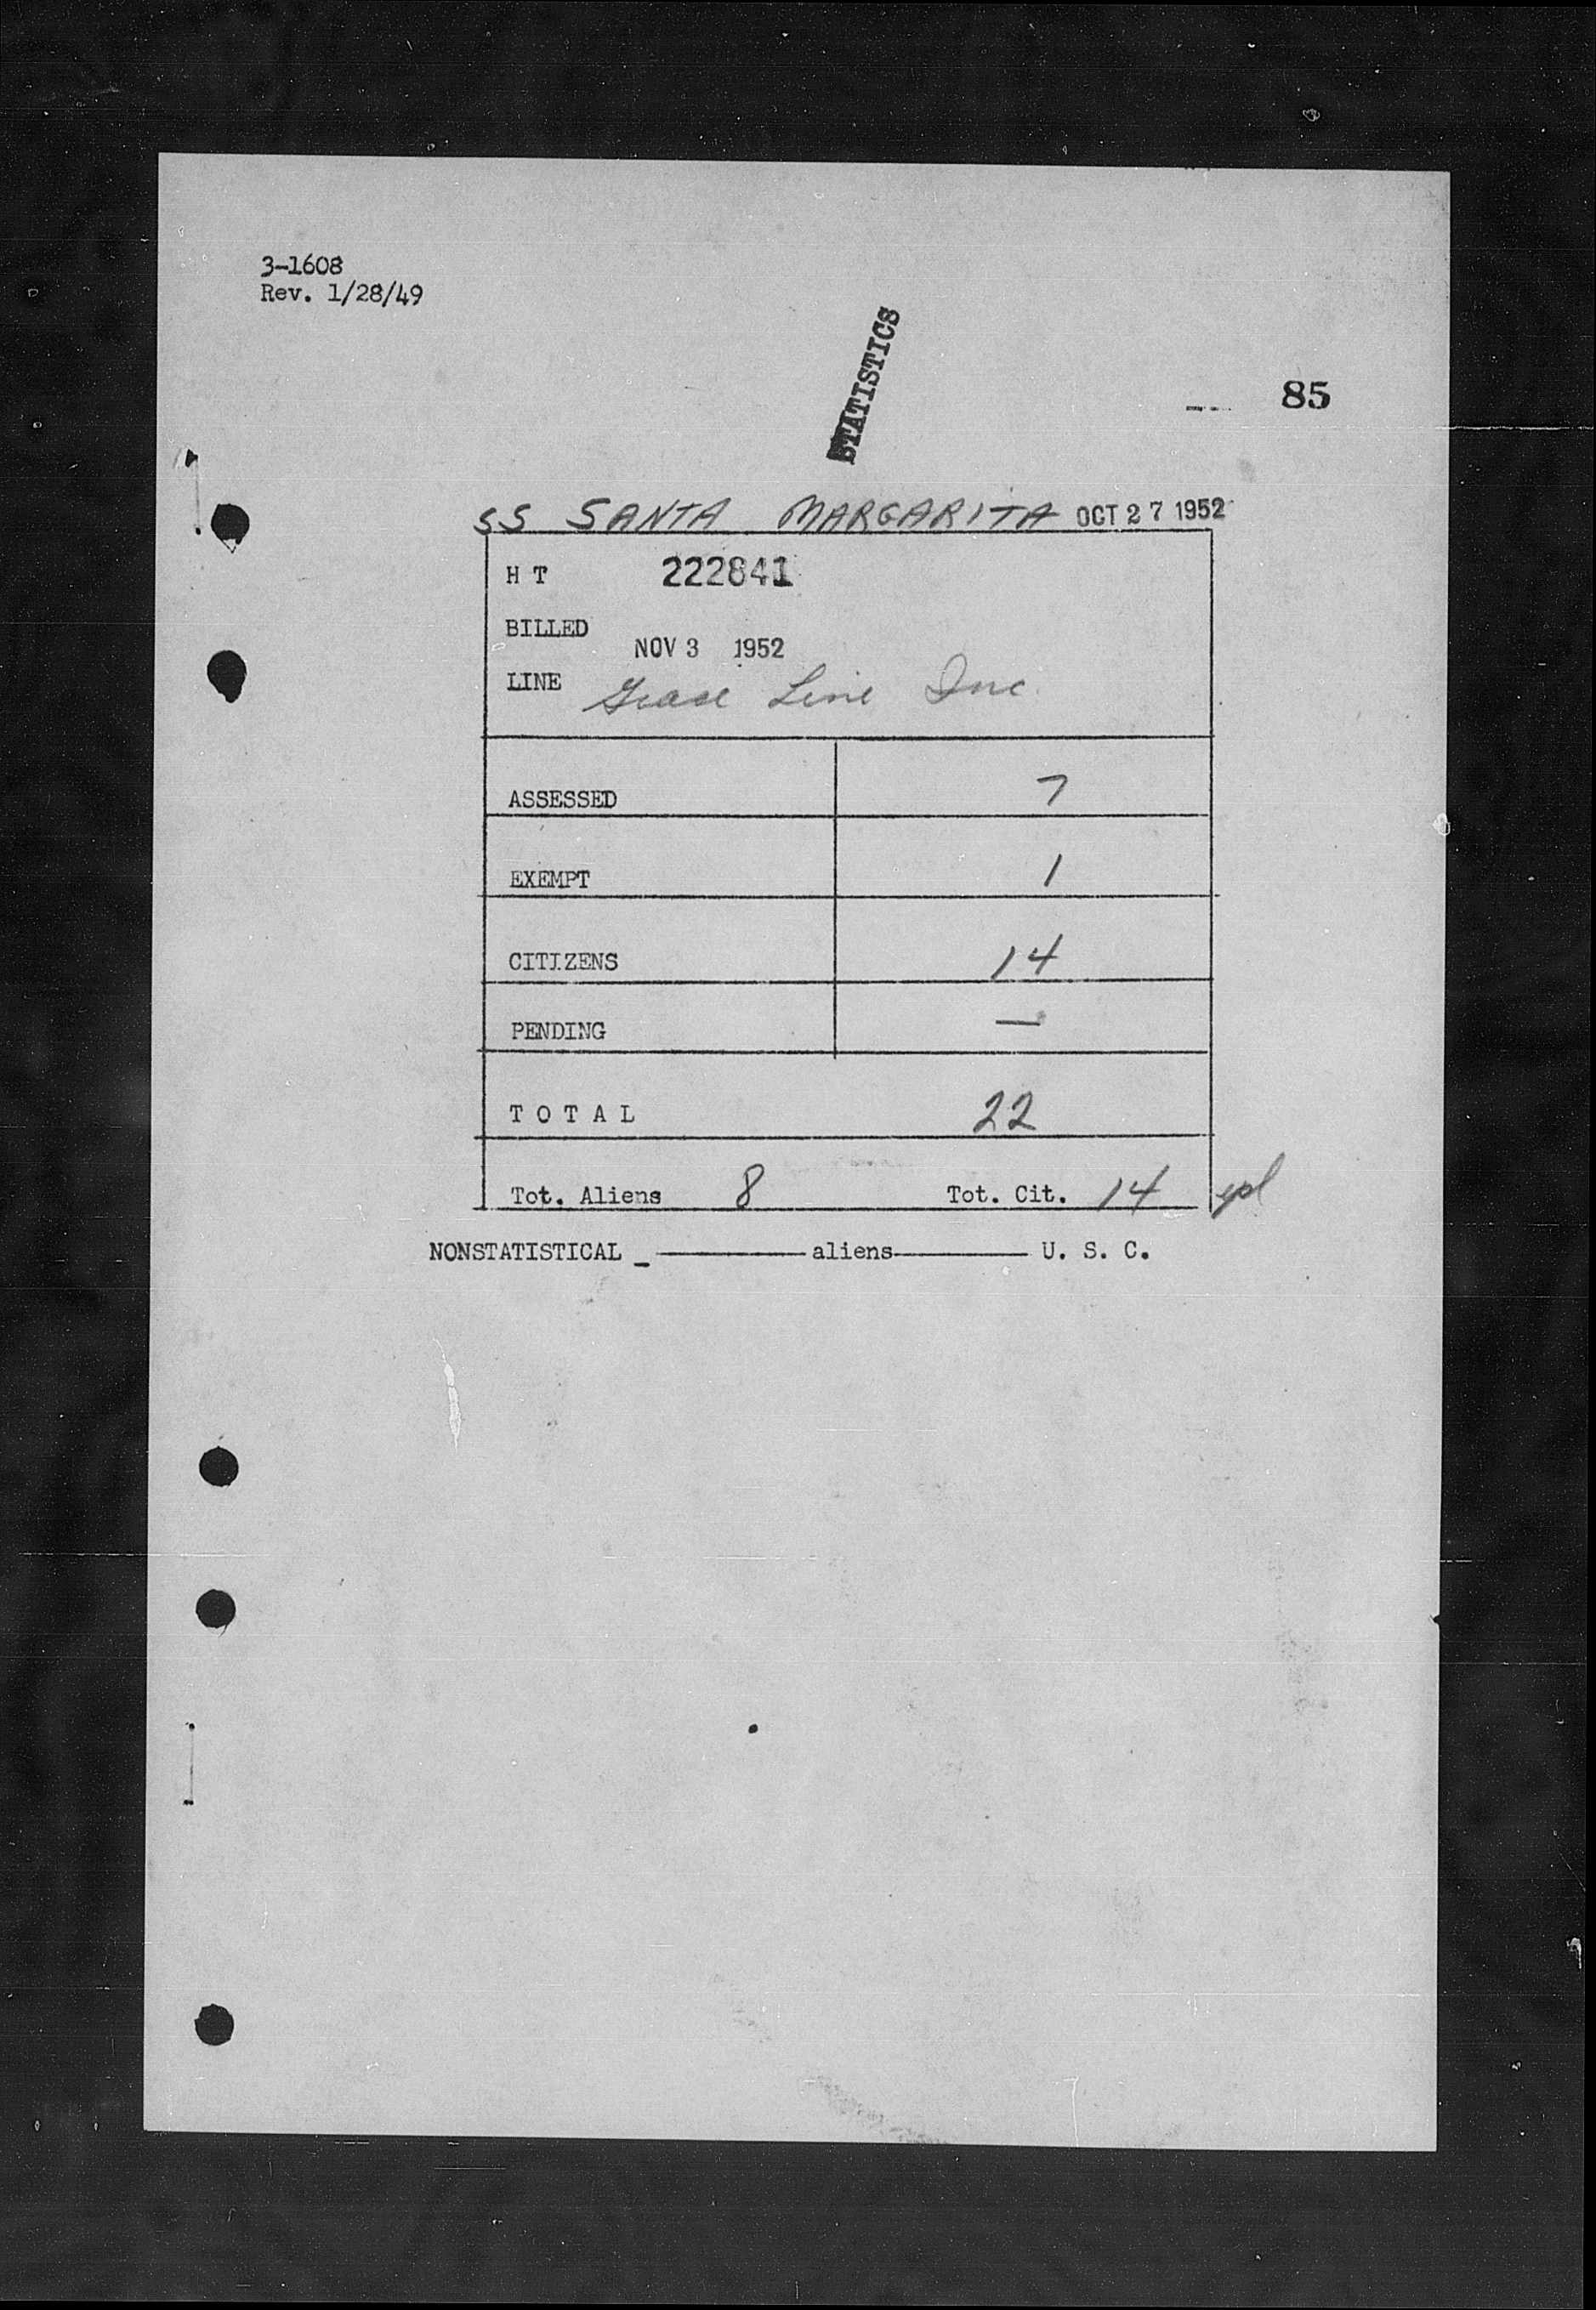 3-1608
Rev. 1/28/49
STATISTICS
85
SS SANTA MARGARITA OCT 27 1952
H T 222841
BILLED NOV 3 1952
LINE Grace Line Inc.
ASSESSED 7
EXEMPT 1
CITIZENS 14
PENDING —
T O T A L 22
Tot. Aliens 8 Tot. Cit. 14
NONSTATISTICAL _ ——— aliens ——— U. S. C.